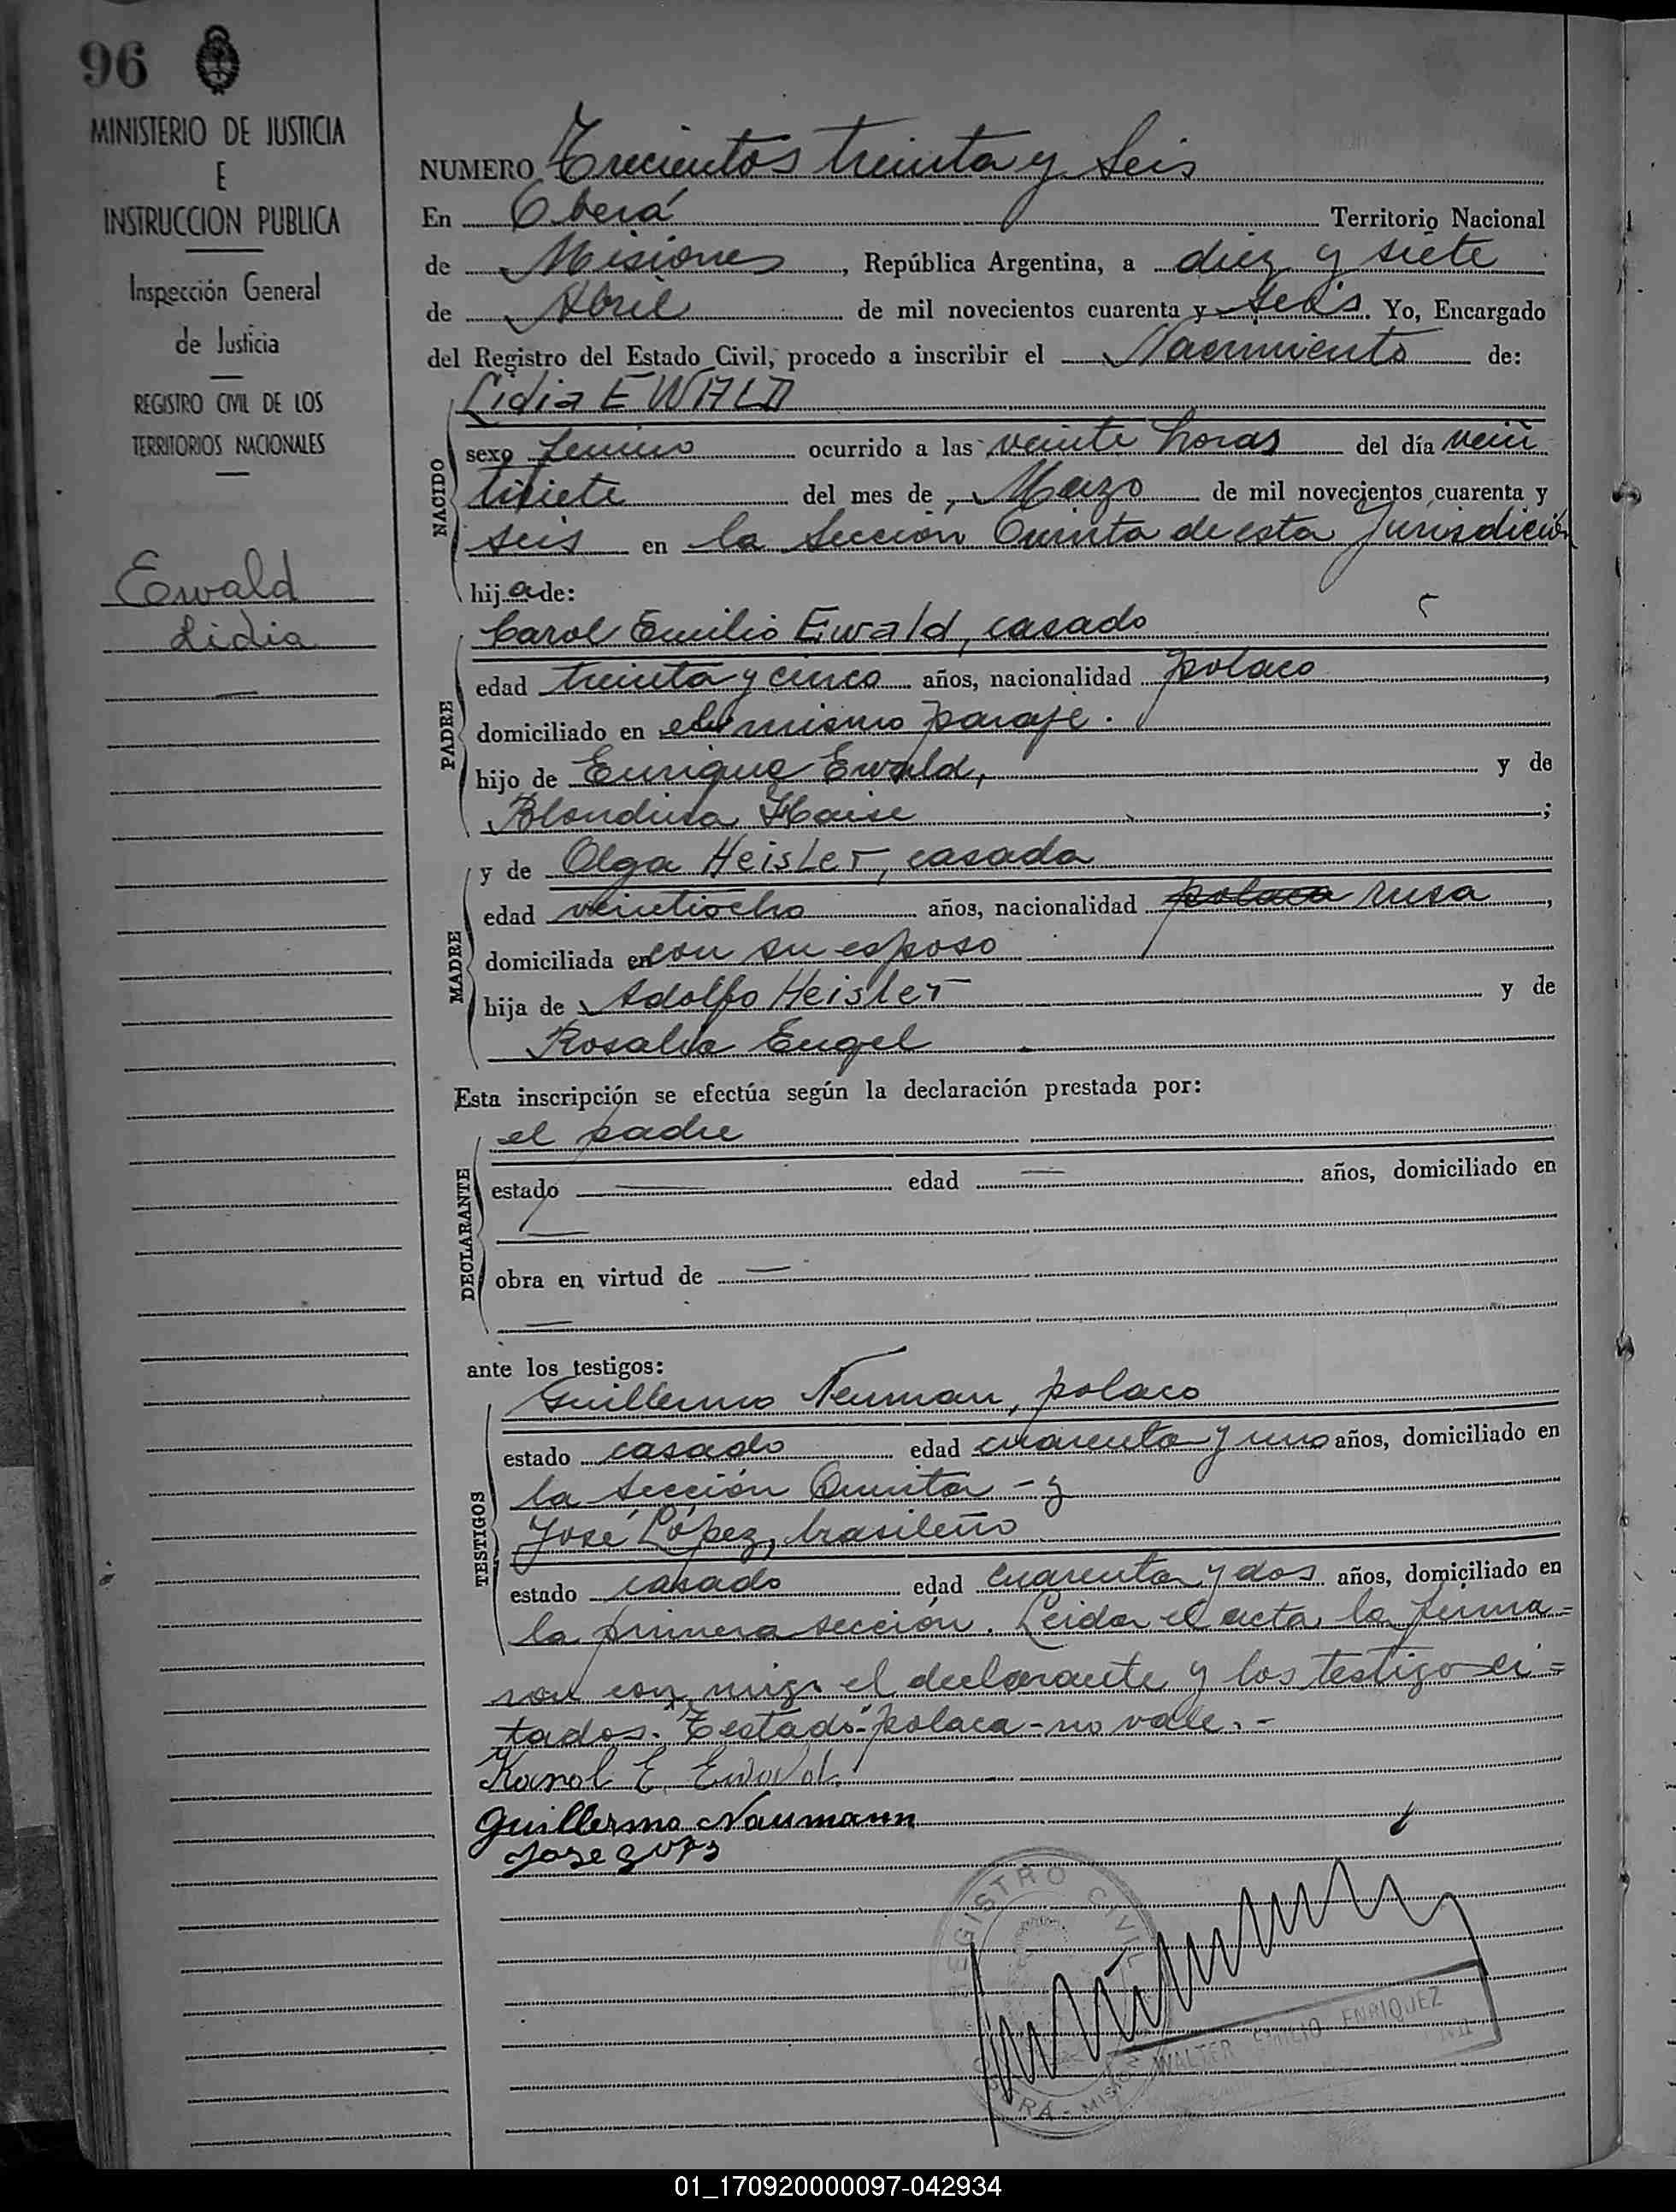 96
MINISTERIO DE JUSTICIA
E
INSTRUCCION PUBLICA
Inspección General
de Justicia
REGISTRO CIVIL DE LOS
TERRITORIOS NACIONALES
Ewald
Lidia
NUMERO Trecientos treinta y Seis
En Oberá Territorio Nacional
de Misiones, República Argentina, a diez y siete
de Abril de mil novecientos cuarenta y seis. Yo, Encargado
del Registro del Estado Civil, procedo a inscribir el Nacimiento de:
Lidia EWALD
NACIDO
sexo femino ocurrido a las veinte horas del día vein
tisiete del mes de Marzo de mil novecientos cuarenta y
seis en la Sección Quinta de esta Jurisdición
hija de:
PADRE
Carol Emilio Ewald, casado
edad treinta y cinco años, nacionalidad polaco,
domiciliado en el mismo paraje.
hijo de Enrique Ewald, y de
Blondina Haise;
MADRE
y de Olga Heisler, casada
edad veintiocho años, nacionalidad polaca rusa,
domiciliada en con su esposo
hija de Adolfo Heisler y de
Rosalia Engel
Esta inscripción se efectúa según la declaración prestada por:
DECLARANTE
el padre
estado — edad — años, domiciliado en
—
obra en virtud de —
—
ante los testigos:
TESTIGOS
Guillermo Neuman, polaco
estado casado edad cuarenta y uno años, domiciliado en
la Sección Quinta - y
José López, brasileño
estado casado edad cuarenta y dos años, domiciliado en
la primera sección. Leida el acta la firma=
ron con migo el declarante y los testigo ci=
tados. Testado "polaca - no vale. -
Karol E. Ewald.
Guillermo Naumann
Jose
REGISTRO CIVIL
OBERÁ - MISIONES
WALTER EMILIO ENRIQUEZ
01_170920000097-042934